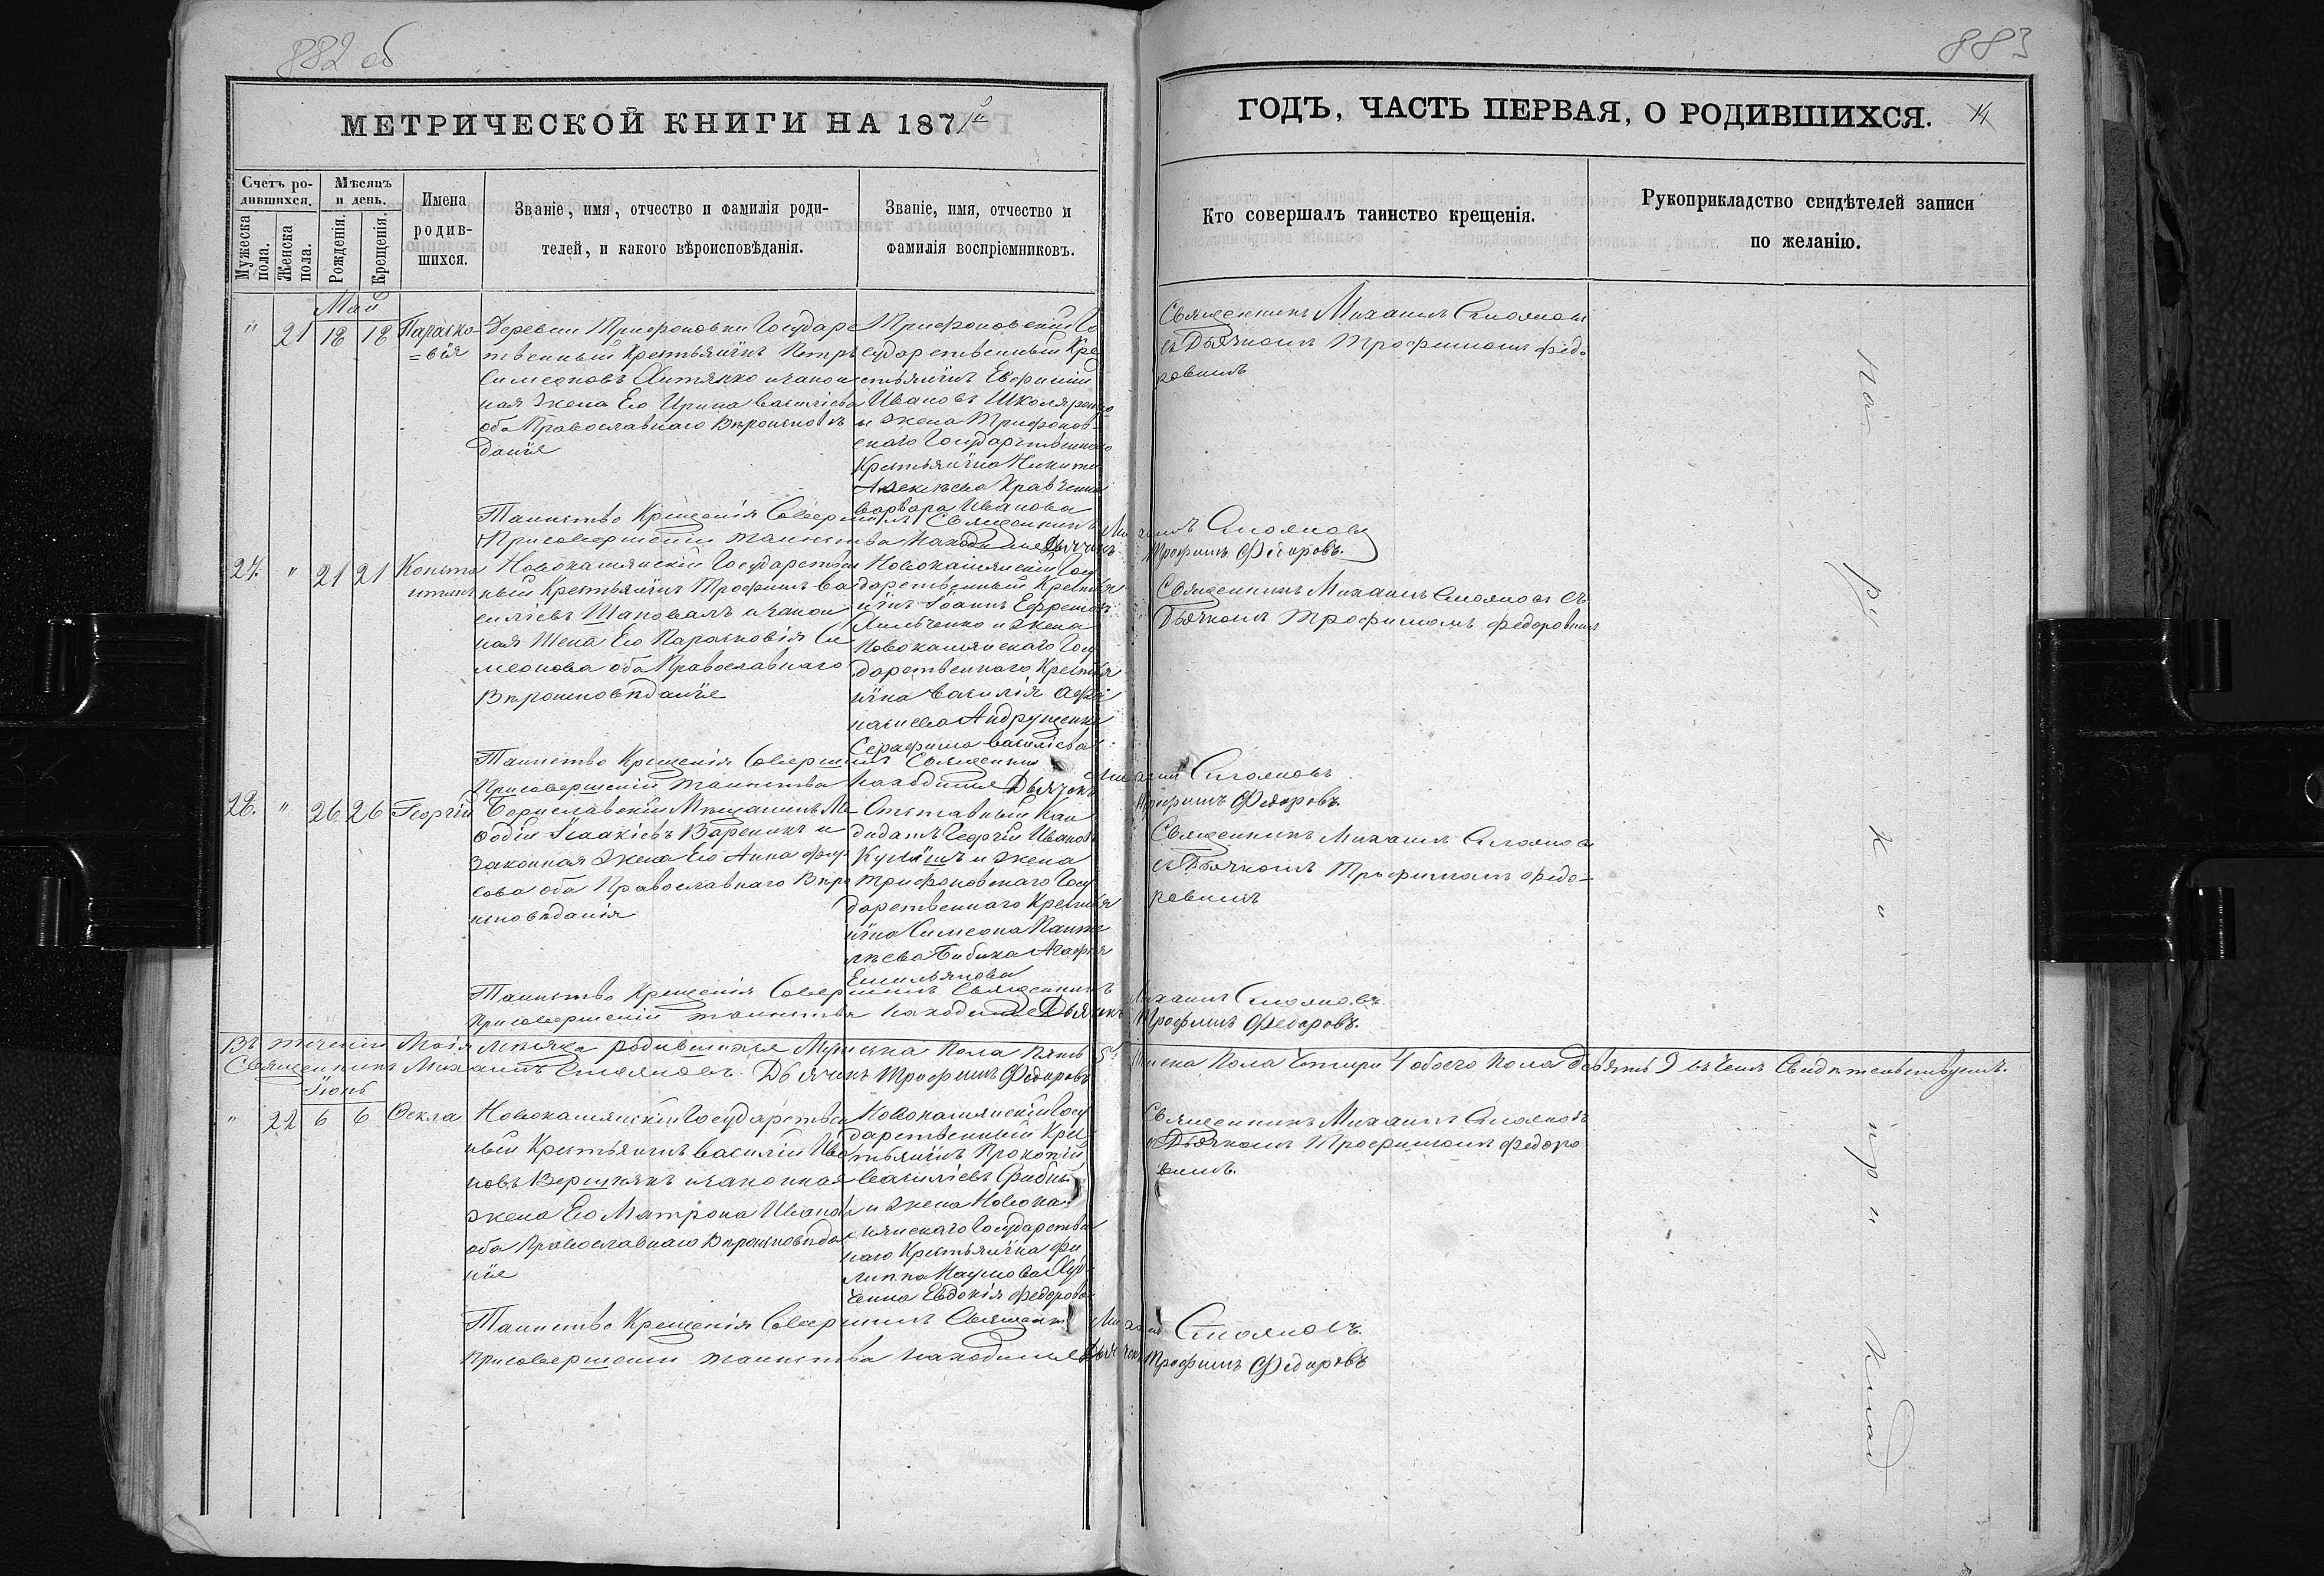 882 об
МЕТРИЧЕСКОЙ КНИГИ НА 1871й
Счетъ ро-
дившихся.
Мужеска
пола.
Женска
пола.
Мѣсяцъ
и день.
Рожденія.
Крещенія.
Имена
родив-
шихся.
Званіе, имя, отчество и фамилія роди-
телей, и какого вѣроисповѣданія.
Званіе, имя, отчество и
фамилія воспріемниковъ.
Май
" 21 18 18 Параско-
=вія
Деревни Трифоновки Государс
твенный Крестьянинъ Петръ
Симеоновъ Литянко и закон
ная Жена Его Ирина Василіева
оба Православнаго Вѣроисповѣ
данія
Трифоновский Го
сударственный Кре
стьянинъ Евфимій
Ивановъ Школяренко
и жена Трифонов-
скаго Государственнаго
Крестьянина Никиты
Алексѣева Кравченка
Варвара Иванова
Таинство Крещенія Совершилъ Священникъ
При совершеніи таинства находился Дьячекъ
27. " 21 21 Конста
нтинъ
Новокамянскій Государствен
ный Крестьянинъ Трофимъ Ва
силіевъ Шаповалъ и закон
ная Жена Его Парасковія Си
меонова оба Православнаго
Вѣроисповѣданія
Новокамянскій Госу
дарственный Крестья
нинъ Іоаннъ Ефремовъ
Хильченко и жена
Новокамянскаго Госу
дарственнаго Крестья
нина Василія Афа
насіева Андрущенка
Серафима Василіева
Таинство Крещенія Совершилъ Священникъ
При совершеніи таинства находился Дьячекъ
28. " 26 26 Георгій
Бериславскій Мещанинъ Ме
ѳодій Ісаакіевъ Вареникъ и
Законная Жена Его Анна Фир
сова оба Православнаго Вѣро
исповѣданія
Отставный Кан
дидатъ Георгій Ивановъ
Кулишъ и жена
Трифоновскаго Госу
дарственнаго Крестья
нина Симеона Панте
лѣева Бибика Агафія
Емильянова
Таинство Крещенія Совершилъ Священникъ
При совершеніи таинства находился Дьячекъ
Въ теченіи Маія мѣсяца родившихся Мужеска Пола пять 5
Священникъ Михаилъ Стояновъ. Дьячекъ Трофимъ Федоровъ
Іюнь
" 22 6 6 Ѳекла
Новокамянскій Государствен
ный Крестьянинъ Василій Ива
новъ Верщнякъ и законная
жена Его Матрона Иванова
оба Православнаго Вѣроисповѣда
нія
Новокамянскій Госу
дарственный Крес
тьянинъ Прокопій
Василіевъ
и жена Новока
мянскаго Государствен
наго Крестьянина Фи
липпа Наумова
Евдокія Федорова
Таинство Крещенія Совершилъ Священ
При совершеніи таинства находился Дьячекъ
883
ГОДЪ, ЧАСТЬ ПЕРВАЯ, О РОДИВШИХСЯ. 14
Кто совершалъ таинство крещенія.
Рукоприкладство свидѣтелей записи
по желанію.
Священникъ Михаилъ Стояновъ
съ Дьячкомъ Трофимомъ Федо-
ровымъ
Михаилъ Стояновъ
Трофимъ Федоровъ.
Священникъ Михаилъ Стояновъ съ
Дьячкомъ Трофимомъ Федоровымъ
Михаилъ Стояновъ
Трофимъ Федоровъ.
Священникъ Михаилъ Стояновъ
съ Дьячкомъ Трофимомъ Федо-
ровымъ
Михаилъ Стояновъ.
Трофимъ Федоровъ.
Женска Пола Четыри 4 обоего Пола Девять 9 въ чемъ Свидѣтельствуемъ.
Священникъ Михаилъ Стояновъ
съ Дьячкомъ Трофимомъ Федоро
вымъ.
Михаилъ Стояновъ.
Трофимъ Федоровъ